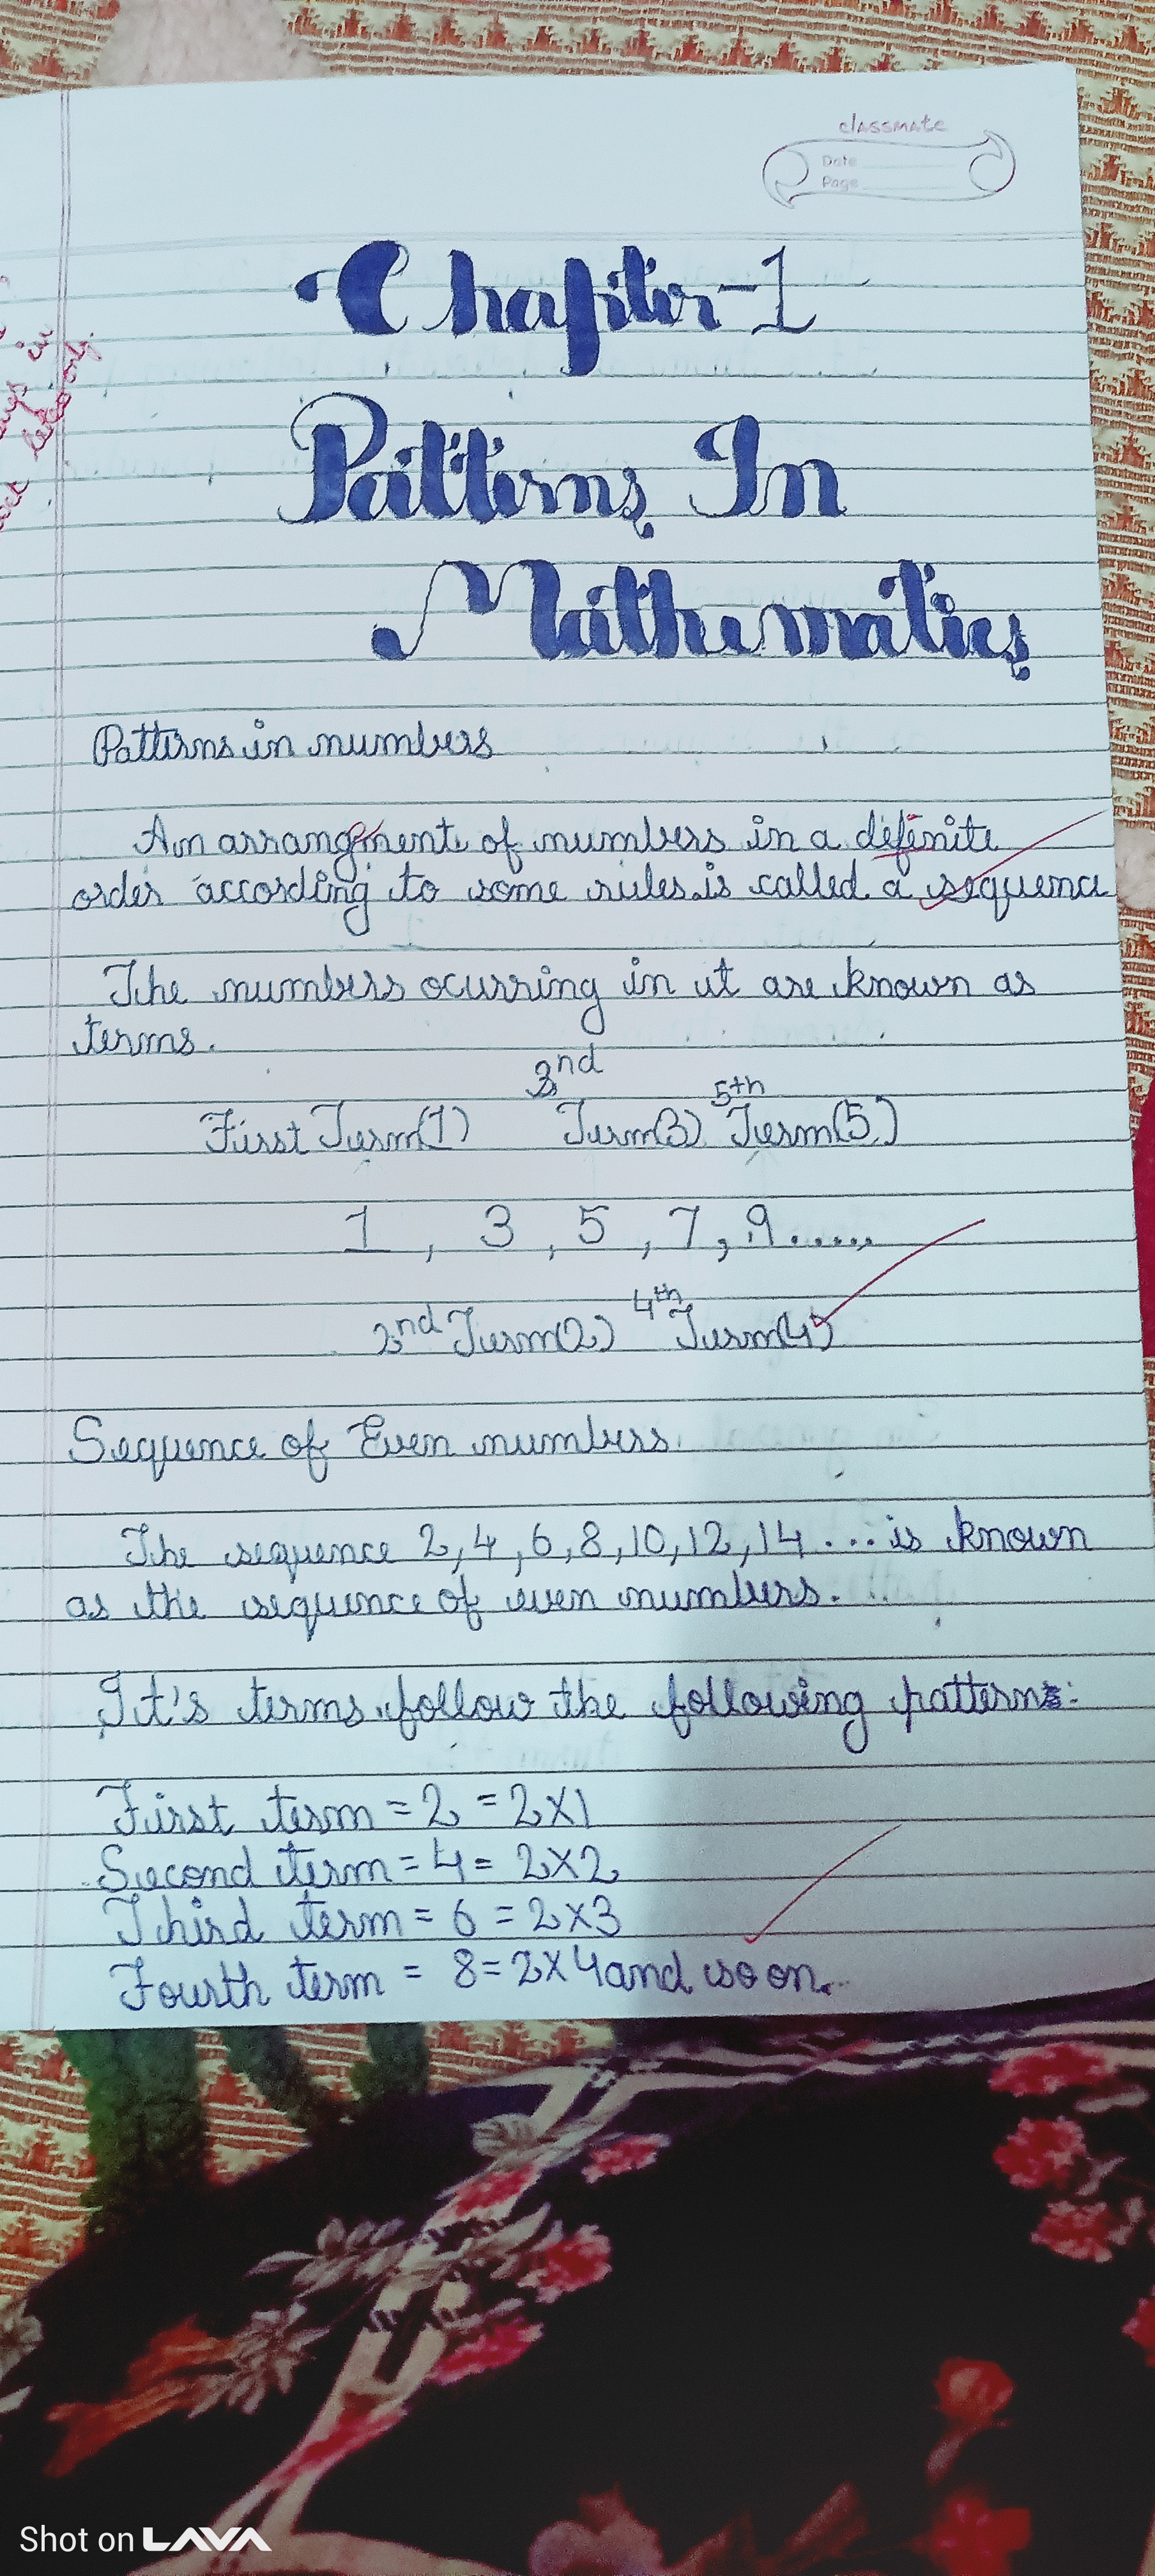 classmate
Date
Page
Chapter-1
Patterns In
Mathematics
Patterns in numbers
An arrangment of numbers in a definite
order according to some rules is called a sequence
The numbers ocurring in it are known as
terms.
3nd 5th
First Term(1) Term(3) Term(5)
1, 3, 5, 7, 9.....
4th
2nd Term(2) Term(4)
Sequence of Even numbers.
The sequence 2,4,6,8,10,12,14... is known
as the sequence of even numbers.
It's terms follow the following patterns:
First term = 2 = 2×1
Second term = 4 = 2×2
Third term = 6 = 2×3
Fourth term = 8 = 2×4 and so on..
Shot on LAVA